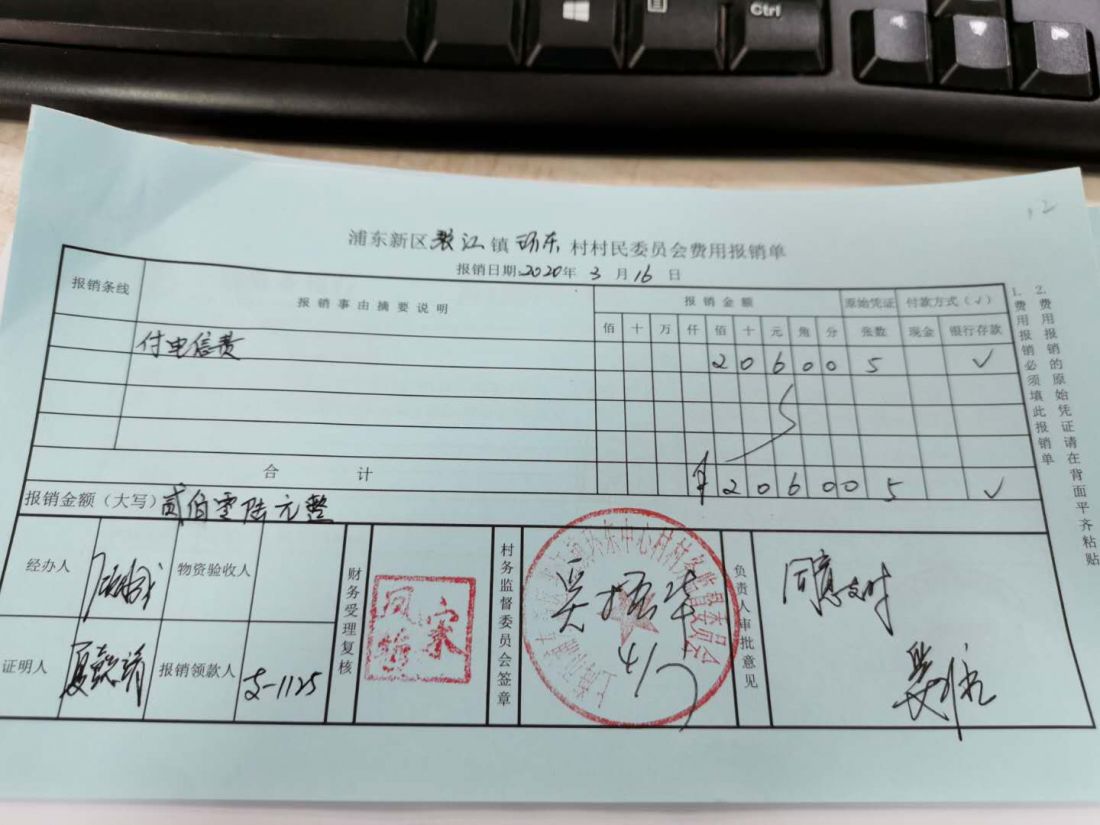 Ctrl
浦东新区张江镇环东村村民委员会费用报销单
报销日期2020年3月16日
报销条线 报销事由摘要说明 报销金额 原始凭证 付款方式(√)
佰 十 万 仟 佰 十 元 角 分 张数 现金 银行存款
付电信费 2 0 6 0 0 5 √
合计 ¥ 2 0 6 0 0 5 √
报销金额(大写)贰佰零陆元整
经办人 物资验收人
财务受理复核
村务监督委员会签章
4/7
负责人审批意见
同意支付
证明人 报销领款人 支-1125
1.费用报销必须填此报销单
2.费用报销的原始凭证请在背面平齐粘贴